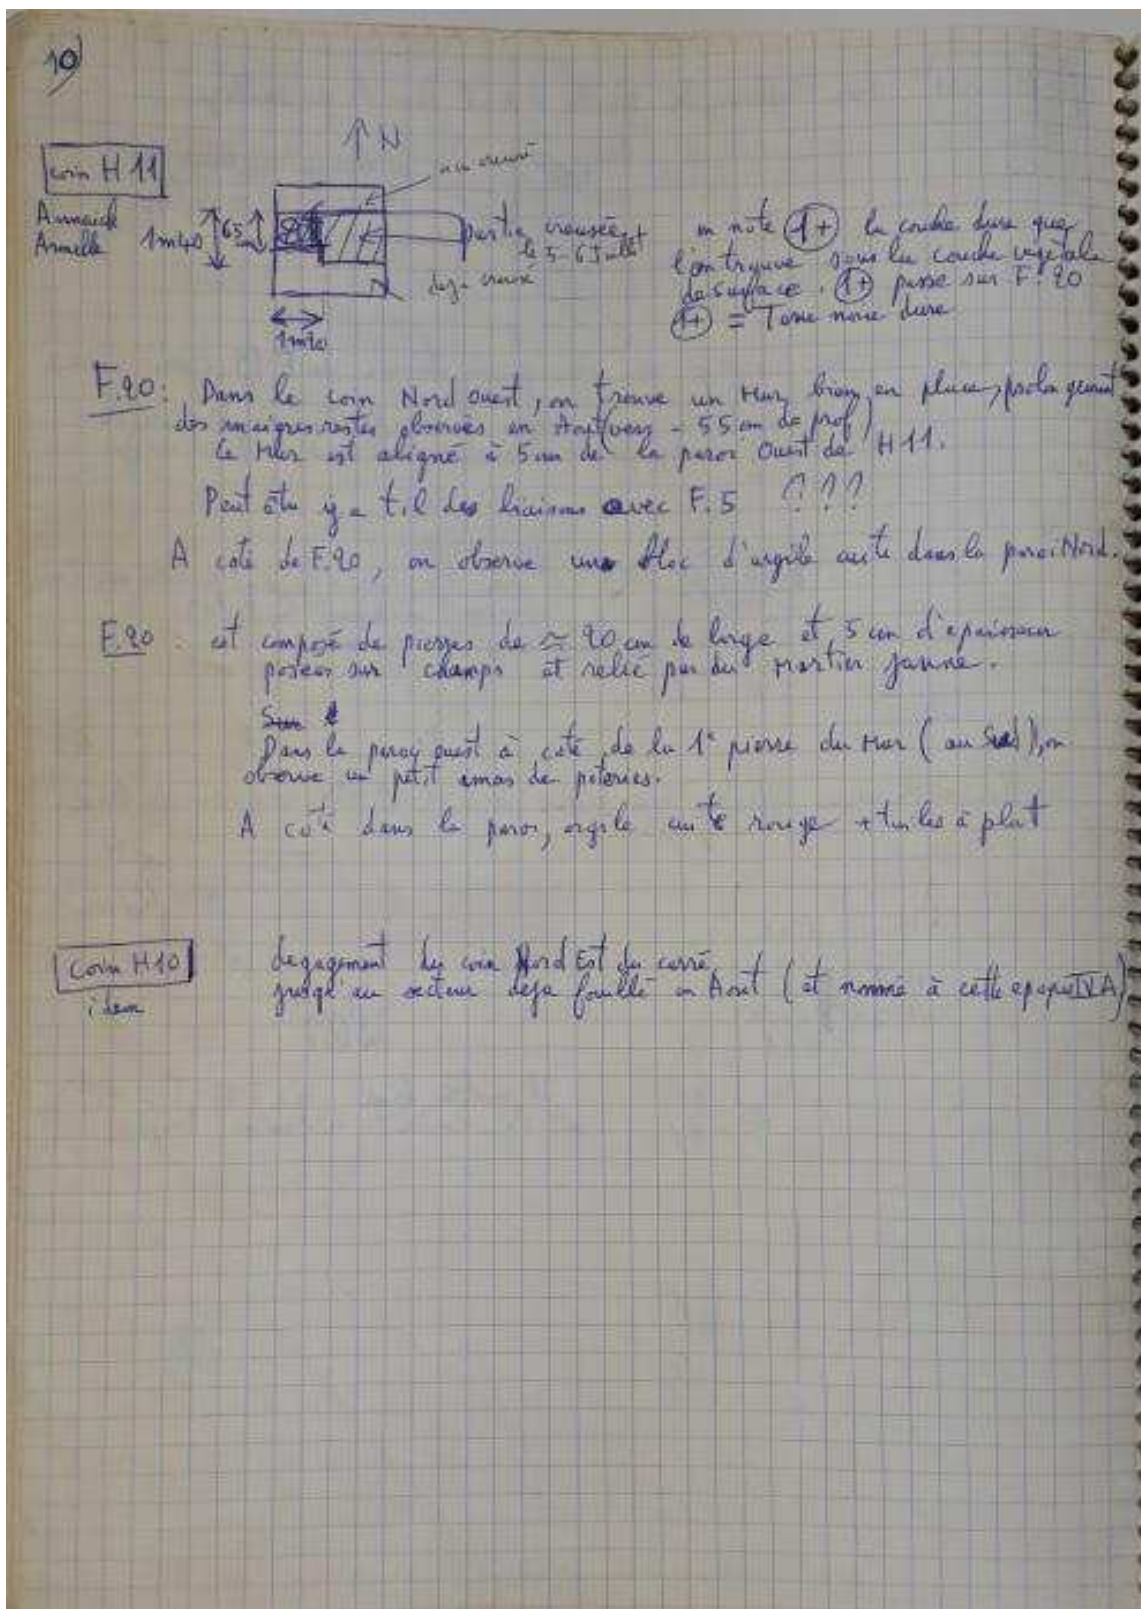 10)
↑ N
coin H 11
non creusé
Armelle
1m40
65
cm
partie creusée
le 5-6 Juillet
déjà creusé
1m20
on note (1+) la couche dure que
l'on trouve sous la couche végétale
de surface. (1+) passe sur F.20
(1+) = Terre noire dure
F.20: Dans le coin Nord Ouest, on trouve un Mur bien en place, prolongeant
des maigres restes observés en Aout (vers - 55 cm de prof)
Le Mur est aligné à 5 cm de la paroi Ouest de H11.
Peut être y a t.il des liaisons avec F.5 ???
A coté de F.20, on observe un bloc d'argile cuite dans la paroi Nord.
F.20 est composé de pierres de ≃ 20 cm de large et 5 cm d'epaisseur
posées sur champs et relié par du Mortier jaune.
Sur
Dans la paroy ouest à coté de la 1° pierre du Mur (au Sud), on
observe un petit amas de poteries.
A coté dans la paroi, argile cuite rouge + tuiles à plat
Coin H10
idem
degagement du coin Nord Est du carré
jusqu'au secteur deja fouillé en Aout (et nommé à cette epoque IV A)